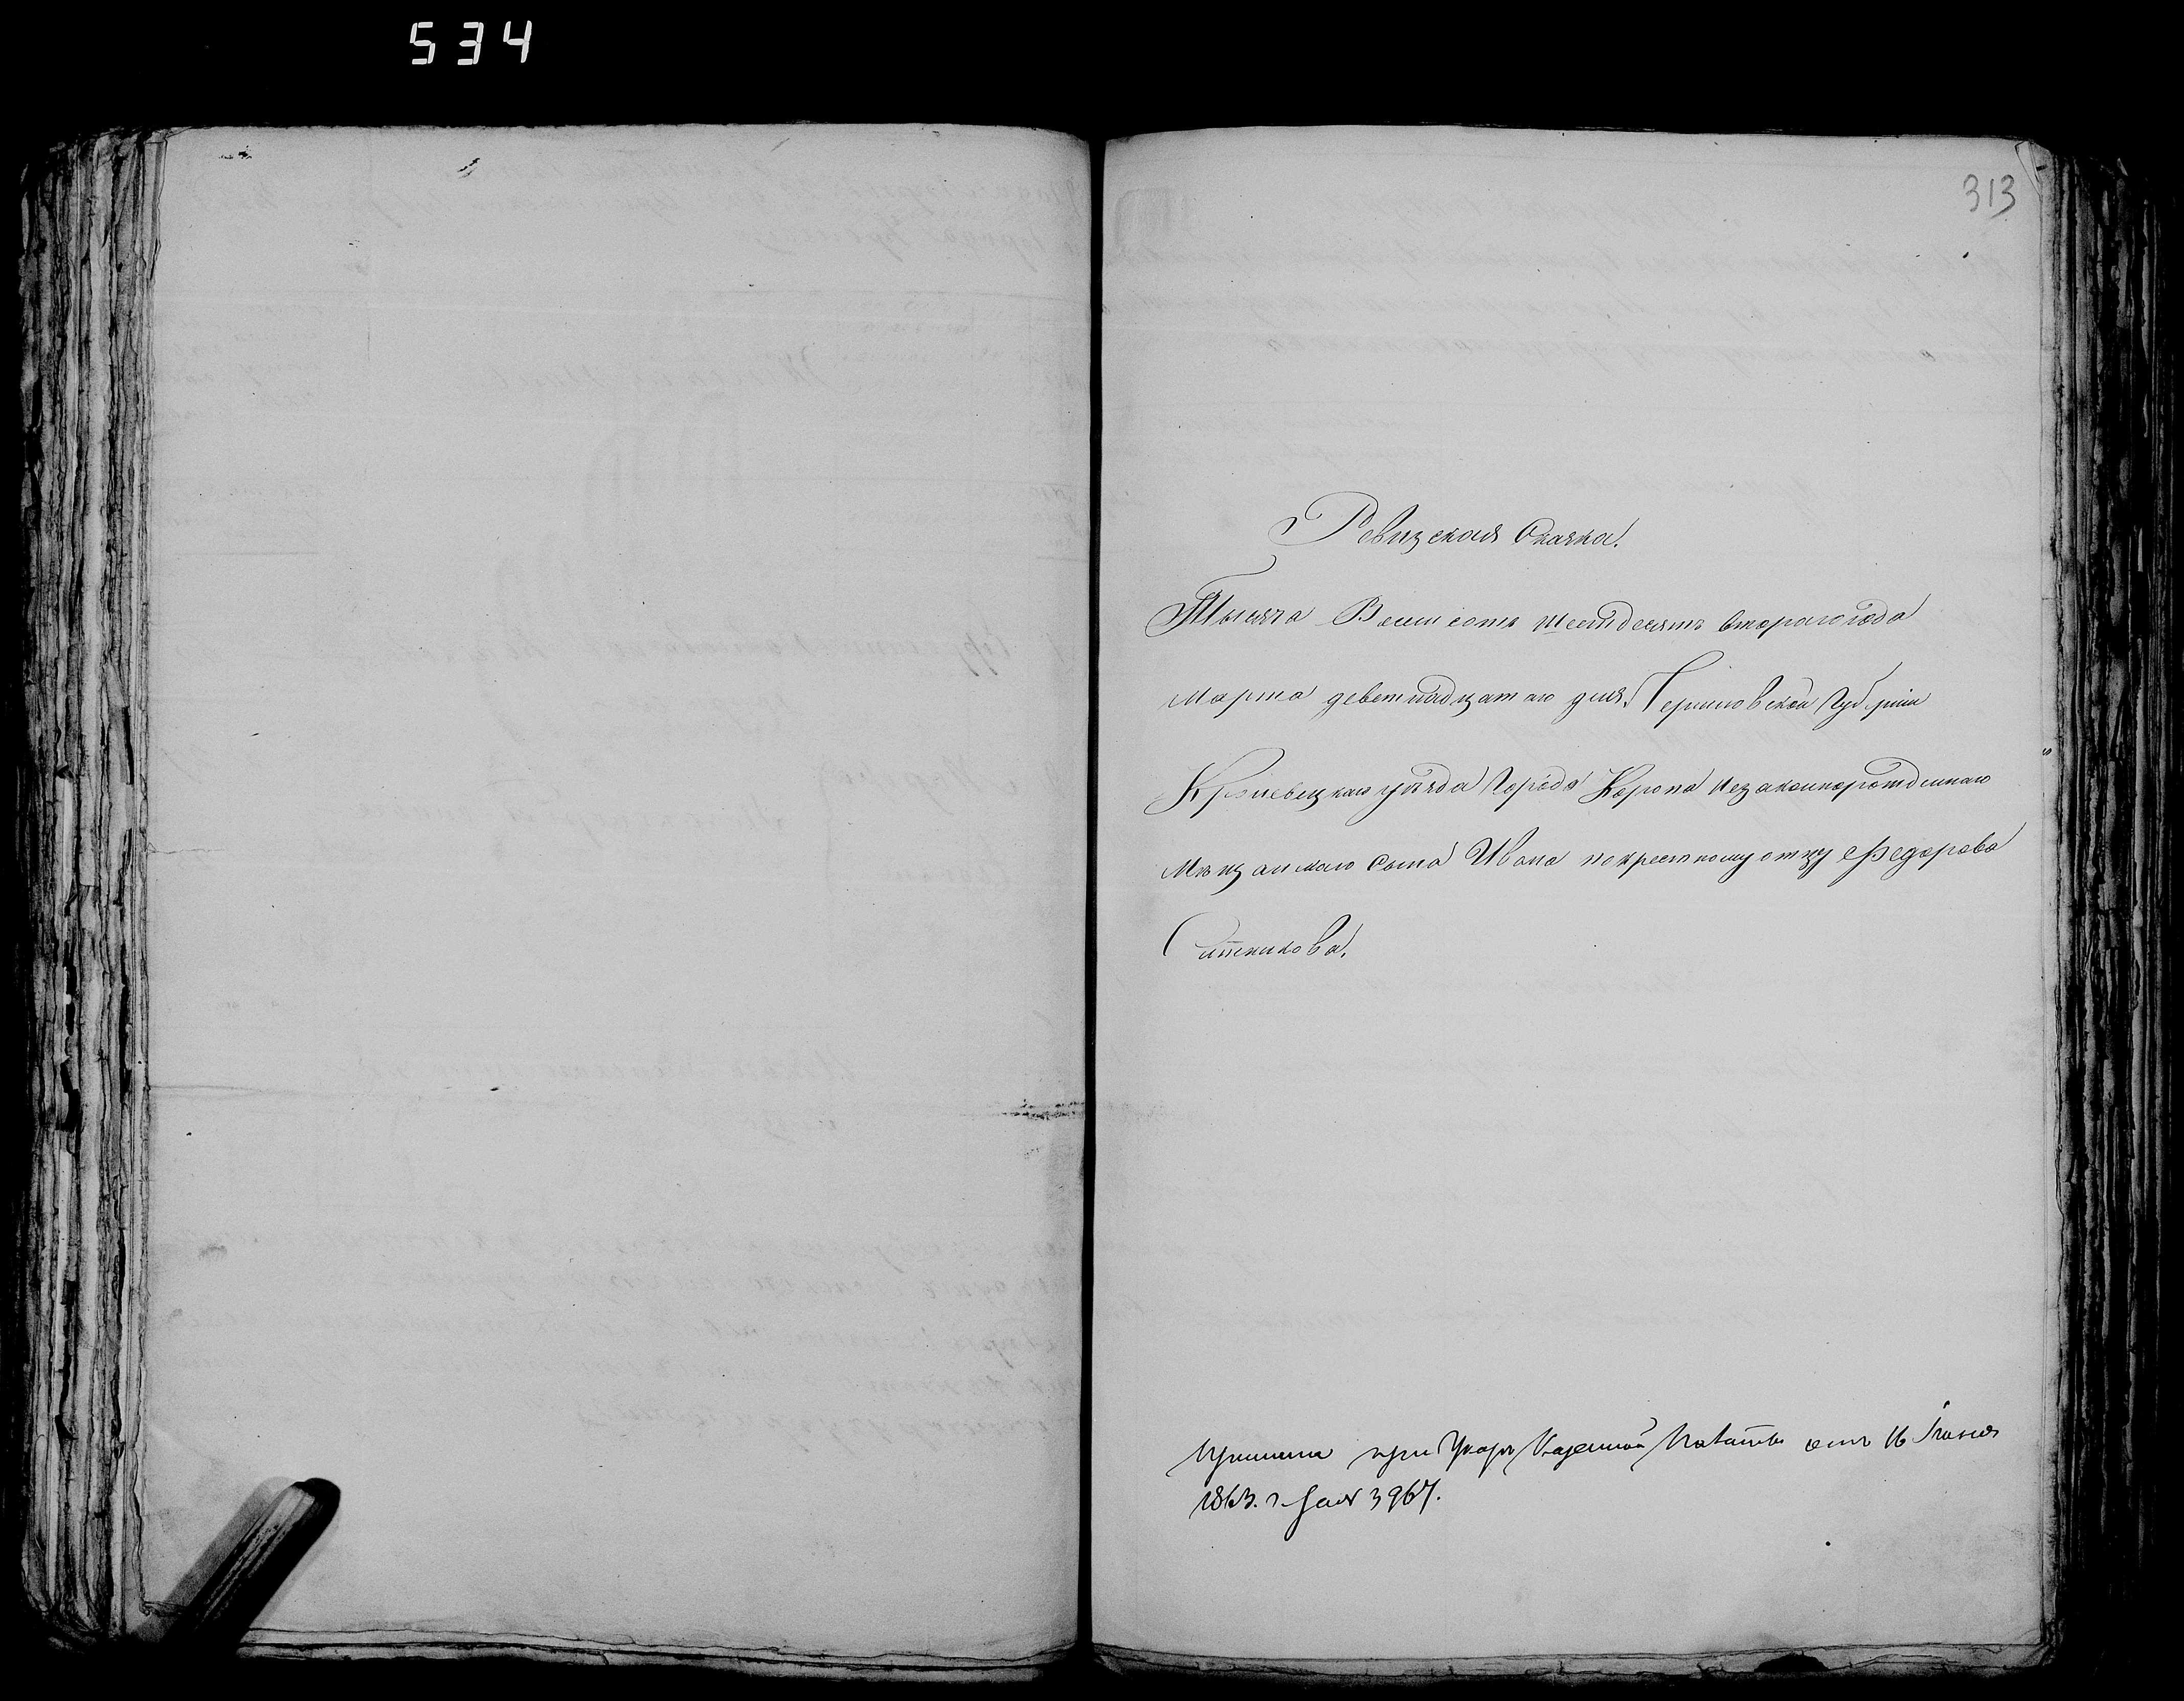 534
313
Ревизская Сказка.
Тысяча Восемсотъ шестдесятъ втораго года
Марта деветнадцатаго дня. Черниговской Губерніи
Кролевецкаго уѣзда Города Коропа незаконнорожденнаго
Мѣщанскаго сына Ивана по крестному отцу Федорова
Ситникова.
при Указѣ Казенной Палаты отъ 16 Іюня
1863. г. за № 3967.